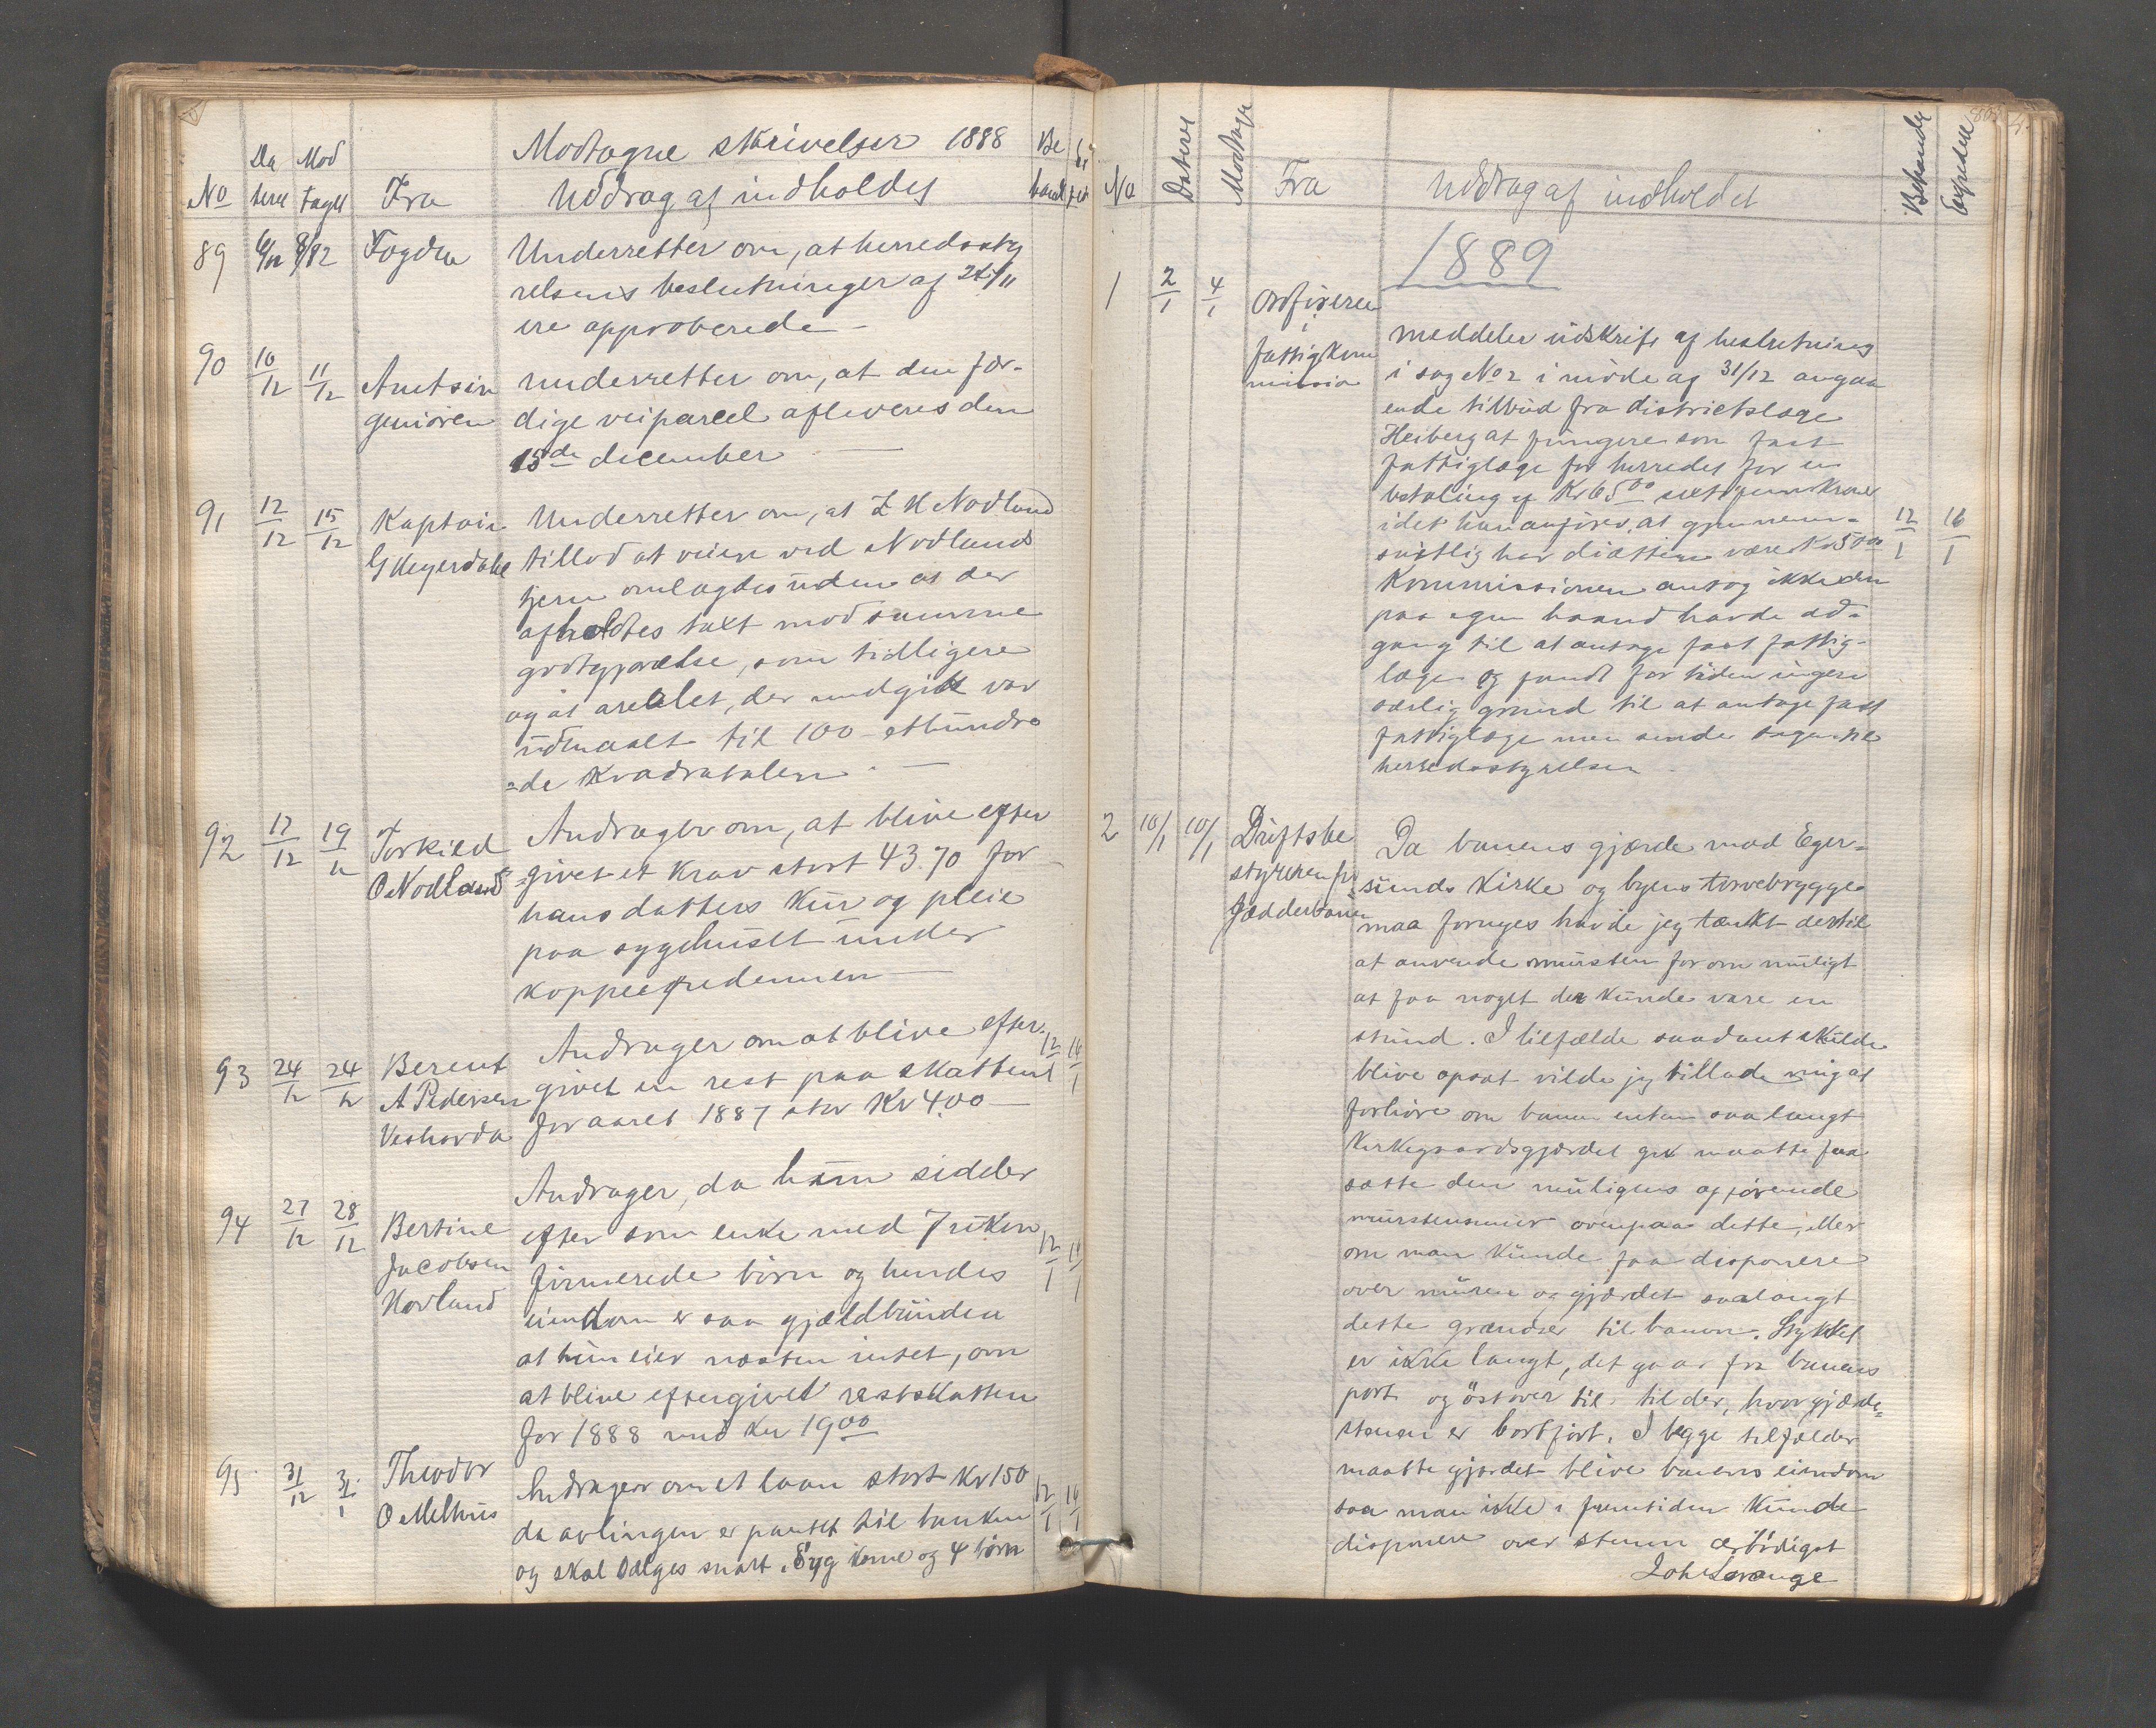 Modtagne skrivelser 1888
No Da teret Mod taget Fra Uddrag af indholdet Be handl
89 6/12 8/12 Fogden Underretter om, at herredssty
relsens beslutninger af 24/11
ere approberede –
90 10/12 11/12 Amtsin
geniören
underretter om, at den fær-
dige veiparcel afleveres den
15de december –
91 12/12 15/12 Kaptain
G Meyerdahl
Underretter om, at Z H Nodland
tillod at veien ved Nodlands
tjern omlagdes uden at der
afholdtes taxt mod samme
godtgjørelse, som tidligere
og at arealet, der medgik var
udmaalt til 100 – ethundre
=de kvadratalen –
92 17/12 19/12 Torkild
O Nodland
Andrager om, at blive efter
=givet et krav stort 43.70 for
hans datters kur og pleie
paa sygehuset under
koppeepedemien –
93 24/12 24/12 Berent
A Pedersen
Veshovda
Andrager om at blive efter- 12/1 16/1
givet en rest paa skatten
for aaret 1887 stor Kr 4.00 –
94 27/12 28/12 Bertine
Jacobsen
Hovland
Andrager, da hun sidder
efter som enke med 7 ukon 12/1 16/1
firmerede börn og hendes
eiendom er saa gjældbunden
at hun eier næsten intet, om
at blive eftergivet restskatten
for 1888 med Kr 19 00
95 31/12 3/1 Theodor
O Melhus
Andrager om et laan stort Kr 150 12/1 16/1
da avlingen er pantet til banken
og skal sælges snart. Syg kone og 4 börn
No Dateret Modtaget Fra Uddrag af indholdet Behandlet Expederet
1889
1 2/1 4/1 Ordföreren
i
fattigkom
mission
meddeler udskrift af beslutning
i sag No 2 i möde af 31/12 angaa
ende tilbud fra districtslæge
Heiberg at fungere som fast
fattiglæge for herredet for en
betaling af Kr 65 00 sextifem kroner
idet han anförer, at gjennem- 12/1 16/1
snitlig har diætten være Kr 50 00
Kommissionen antog ikke den
paa egen haand havde ad-
gang til at antage fast fattig-
læge og fandt for tiden ingen
særlig grund til at antage fast
fattiglæge men sender sagen til
herredsstyrelsen
2 10/1 10/1 Driftsbe
styreren for
Jædderbanen
Da banens gjærde mod Eger-
sunds kirke og byens torvebrygge
maa fornyes havde jeg tænkt dertil
at anvende mursten for om muligt
at faa noget der kunde vare en
stund. I tilfælde saadant skulde
blive opsat vilde jeg tillade mig at
forhöre om banen enten saa langt
kirkegaardsgjærdet gik maatte faa
sætte den muligens opförende
murstensmur ovenpaa dette, eller
om man kunde faa disponere
over muren og gjærdet saalangt
dette grændser til banen. Stykket
er ikke langt, det gaar fra banens
port og östover til til der, hvor gjærde-
stenen er bortfört. I begge tilfælder
maatte gjærdet blive banens eiendom
saa man ikke i fremtiden kunde
disponere over stenen ærbödigst
Joh Lorange